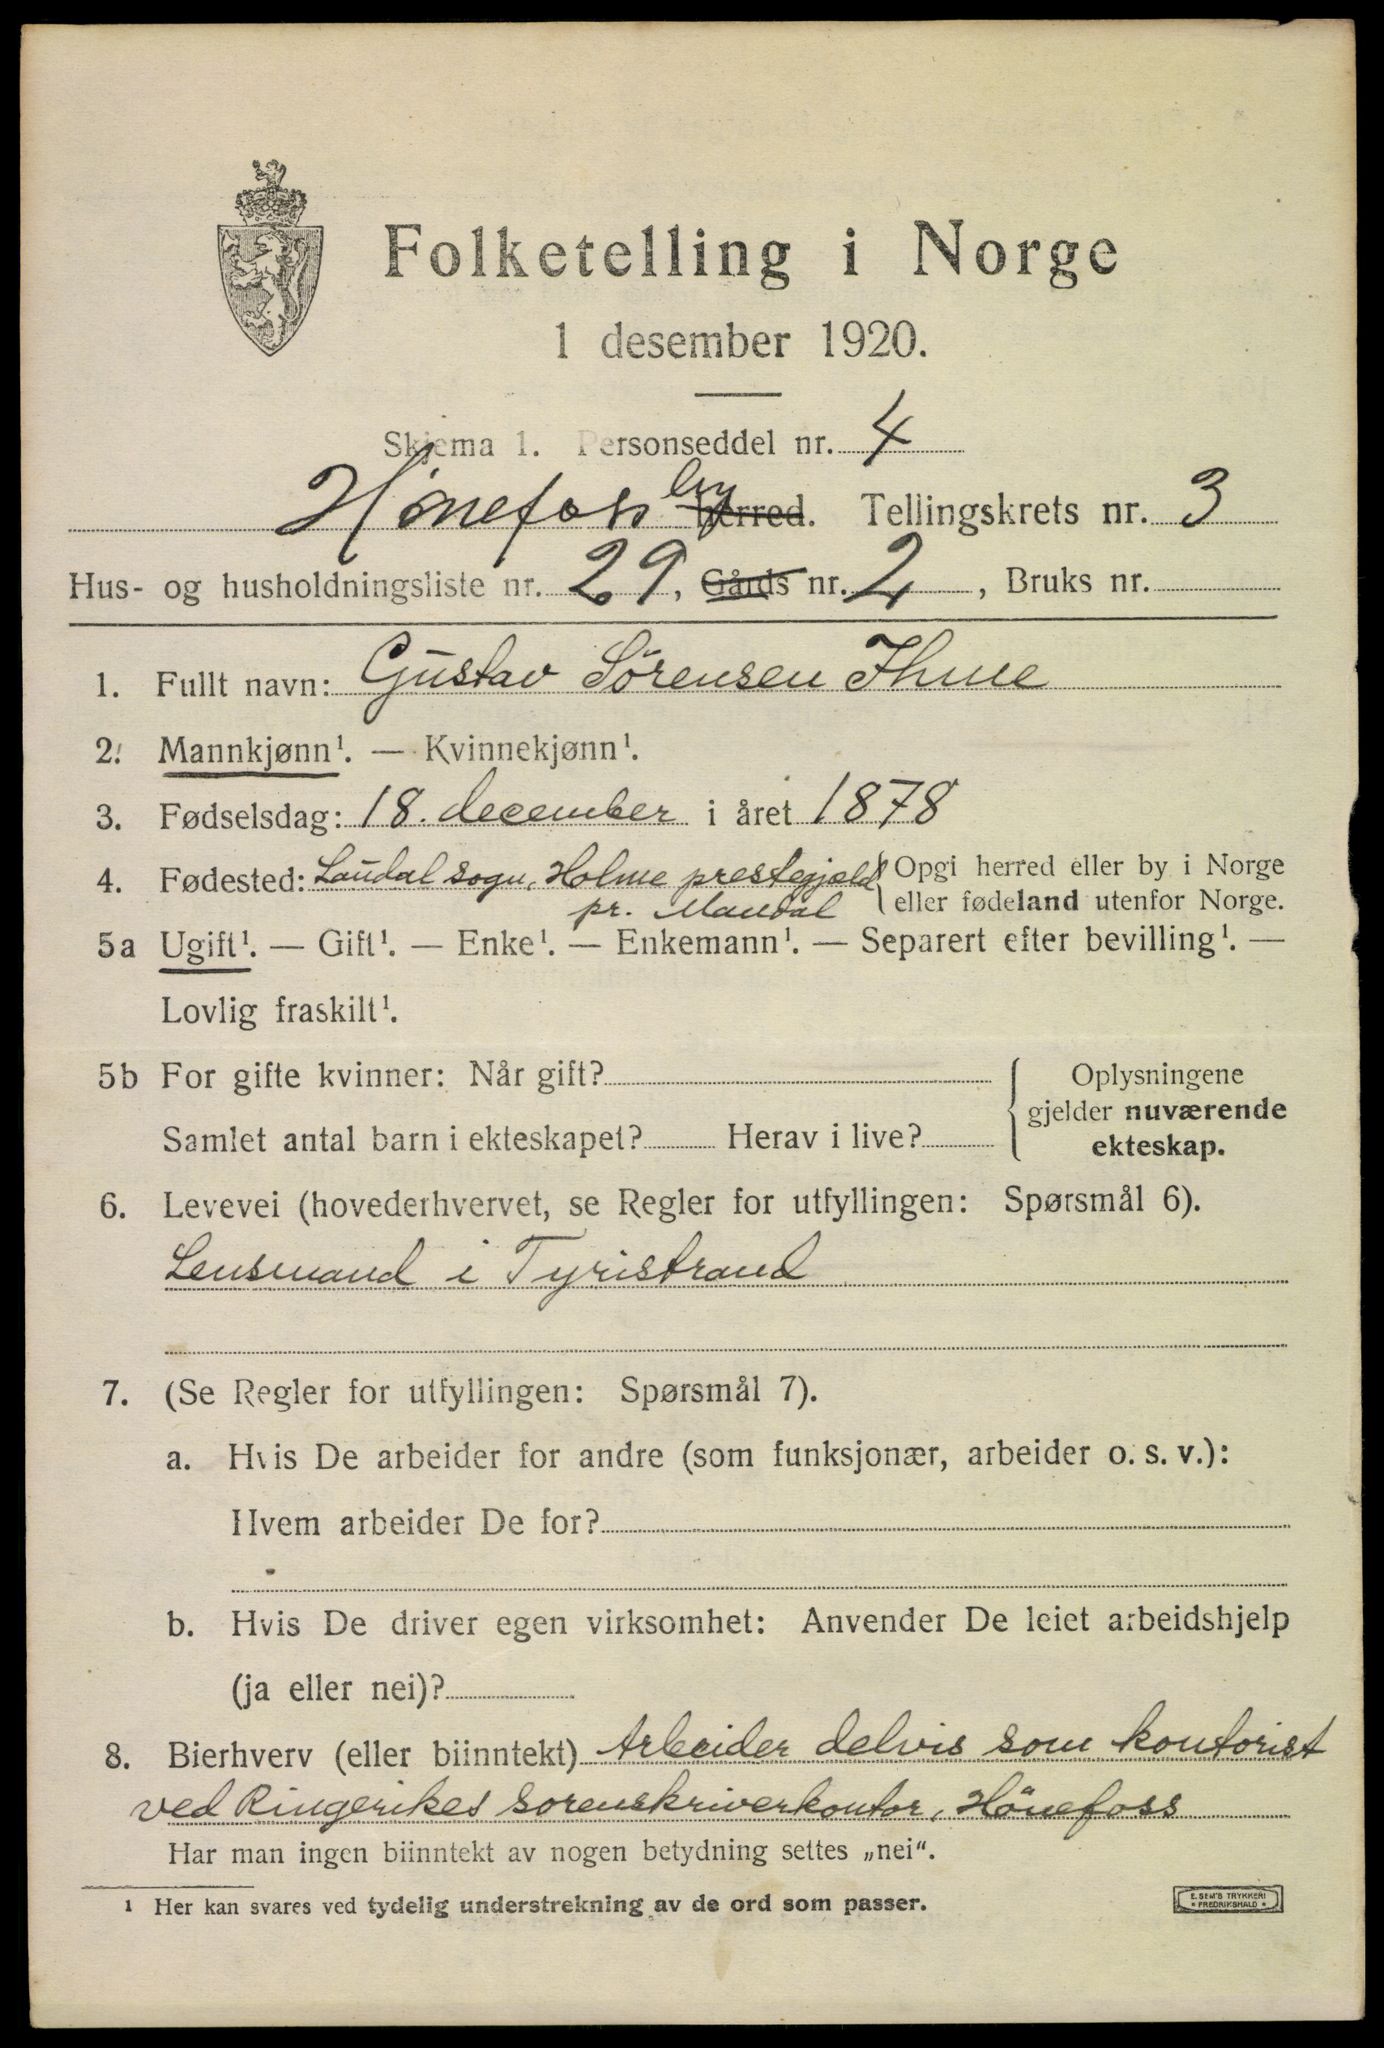 Folketelling i Norge
1 desember 1920.
Skjema 1. Personseddel nr. 4
Hönefoss by herred. Tellingskrets nr. 3
Hus- og husholdningsliste nr. 29, Gårds nr. 2, Bruks nr.
1. Fullt navn: Gustav Sörensen Ihme
2. Mannkjønn¹. — Kvinnekjønn¹.
3. Fødselsdag: 18. december i året 1878
4. Fødested: Laudal sogn, Holme prestegjeld { Opgi herred eller by i Norge
pr. Mandal eller fødeland utenfor Norge.
5a Ugift¹. — Gift¹. — Enke¹. — Enkemann¹. — Separert efter bevilling¹. —
Lovlig fraskilt¹.
5b For gifte kvinner: Når gift? { Oplysningene
gjelder nuværende
Samlet antal barn i ekteskapet? Herav i live? ekteskap.
6. Levevei (hovederhvervet, se Regler for utfyllingen: Spørsmål 6).
Lensmand i Tyristrand
7. (Se Regler for utfyllingen: Spørsmål 7).
a. Hvis De arbeider for andre (som funksjonær, arbeider o. s. v.):
Hvem arbeider De for?
b. Hvis De driver egen virksomhet: Anvender De leiet arbeidshjelp
(ja eller nei)?
8. Bierhverv (eller biinntekt) Arbeider delvis som kontorist
ved Ringerikes sorenskriverkontor, Hönefoss
Har man ingen biinntekt av nogen betydning settes „nei“.
¹ Her kan svares ved tydelig understrekning av de ord som passer.
E. SEM'S TRYKKERI
* FREDRIKSHALD *